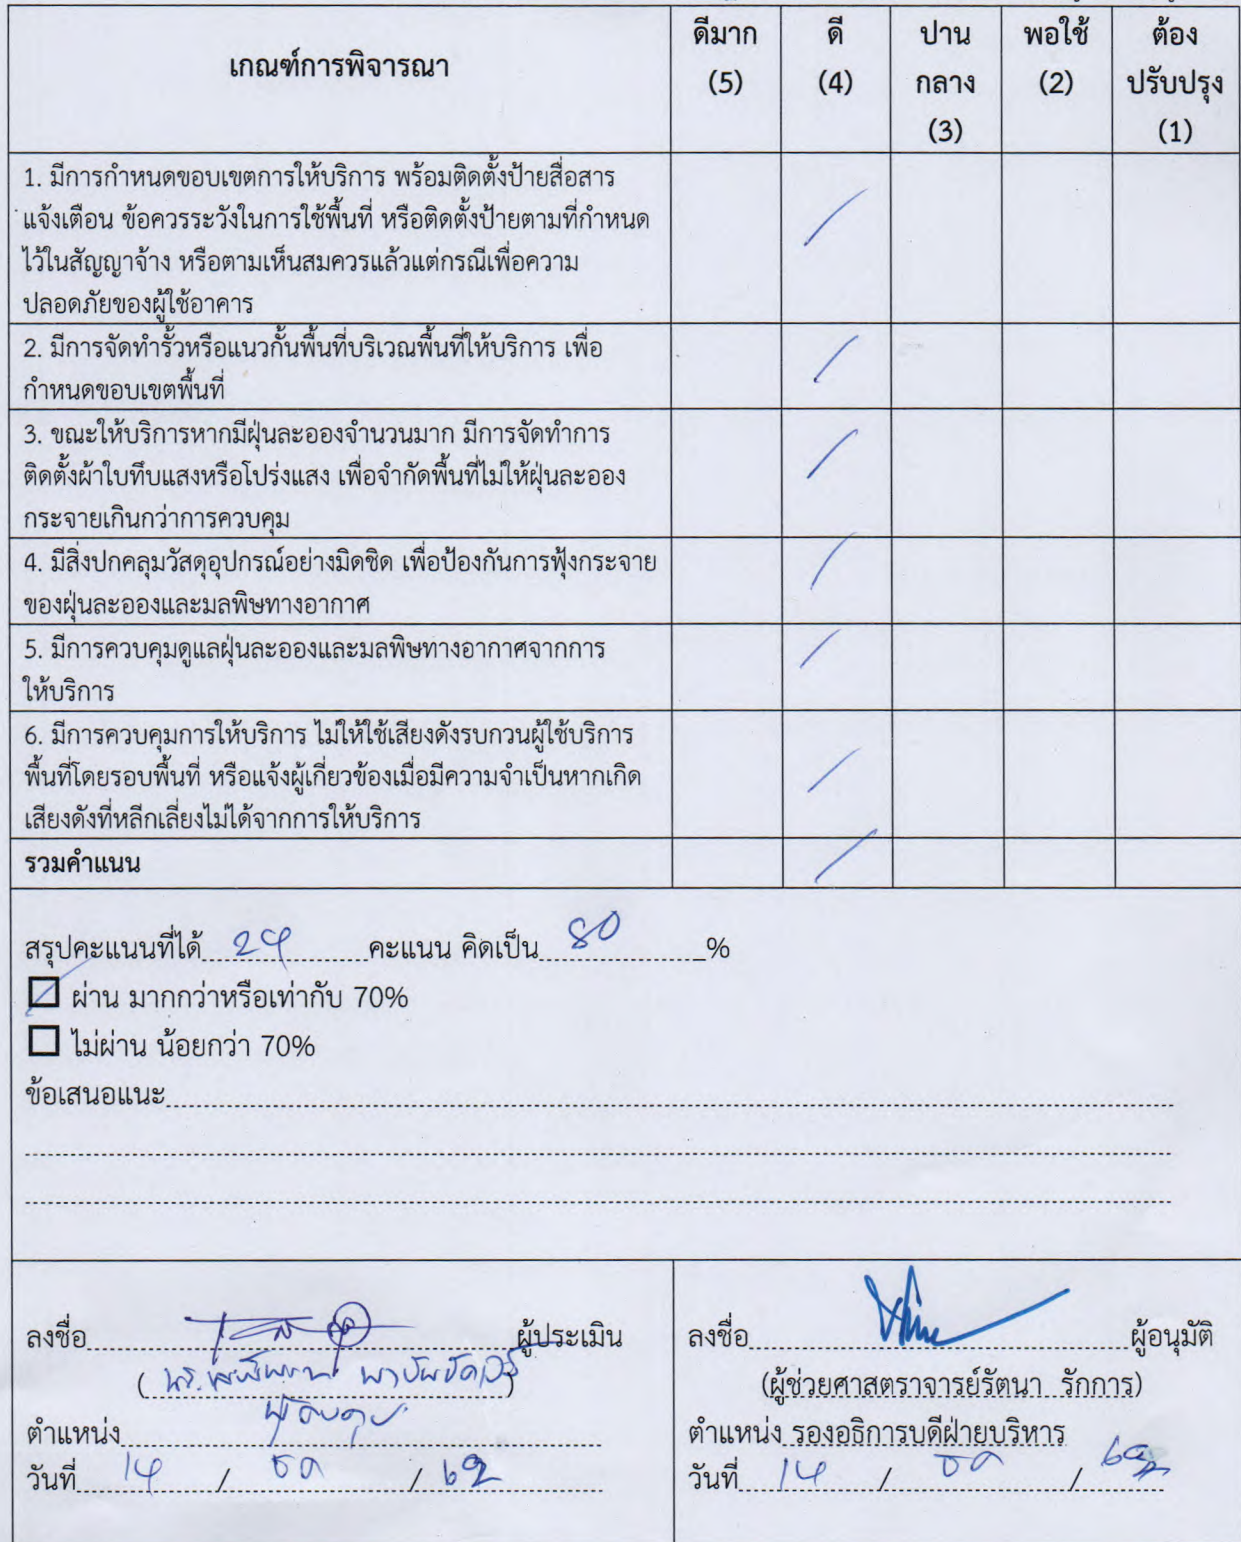 เกณฑ์การพิจารณา
ดีมาก
(5)
ดี
(4)
ปาน
กลาง
(3)
พอใช้
(2)
ต้อง
ปรับปรุง
(1)
1. มีการกำหนดขอบเขตการให้บริการ พร้อมติดตั้งป้ายสื่อสาร
แจ้งเตือน ข้อควรระวังในการใช้พื้นที่ หรือติดตั้งป้ายตามที่กำหนด
ไว้ในสัญญาจ้าง หรือตามเห็นสมควรแล้วแต่กรณีเพื่อความ
ปลอดภัยของผู้ใช้อาคาร
2. มีการจัดทำรั้วหรือแนวกั้นพื้นที่บริเวณพื้นที่ให้บริการ เพื่อ
กำหนดขอบเขตพื้นที่
3. ขณะให้บริการหากมีฝุ่นละอองจำนวนมาก มีการจัดทำการ
ติดตั้งผ้าใบทึบแสงหรือโปร่งแสง เพื่อจำกัดพื้นที่ไม่ให้ฝุ่นละออง
กระจายเกินกว่าการควบคุม
4. มีสิ่งปกคลุมวัสดุอุปกรณ์อย่างมิดชิด เพื่อป้องกันการฟุ้งกระจาย
ของฝุ่นละอองและมลพิษทางอากาศ
5. มีการควบคุมดูแลฝุ่นละอองและมลพิษทางอากาศจากการ
ให้บริการ
6. มีการควบคุมการให้บริการ ไม่ให้ใช้เสียงดังรบกวนผู้ใช้บริการ
พื้นที่โดยรอบพื้นที่ หรือแจ้งผู้เกี่ยวข้องเมื่อมีความจำเป็นหากเกิด
เสียงดังที่หลีกเลี่ยงไม่ได้จากการให้บริการ
รวมคำแนน
สรุปคะแนนที่ได้ 24 คะแนน คิดเป็น 80 %
ผ่าน มากกว่าหรือเท่ากับ 70%
ไม่ผ่าน น้อยกว่า 70%
ข้อเสนอแนะ
ลงชื่อ ผู้ประเมิน
ตำแหน่ง ผู้ควบคุม
วันที่ 14 / ธค / 62
ลงชื่อ ผู้อนุมัติ
(ผู้ช่วยศาสตราจารย์รัตนา รักการ)
ตำแหน่ง รองอธิการบดีฝ่ายบริหาร
วันที่ 14 / ธค / 62